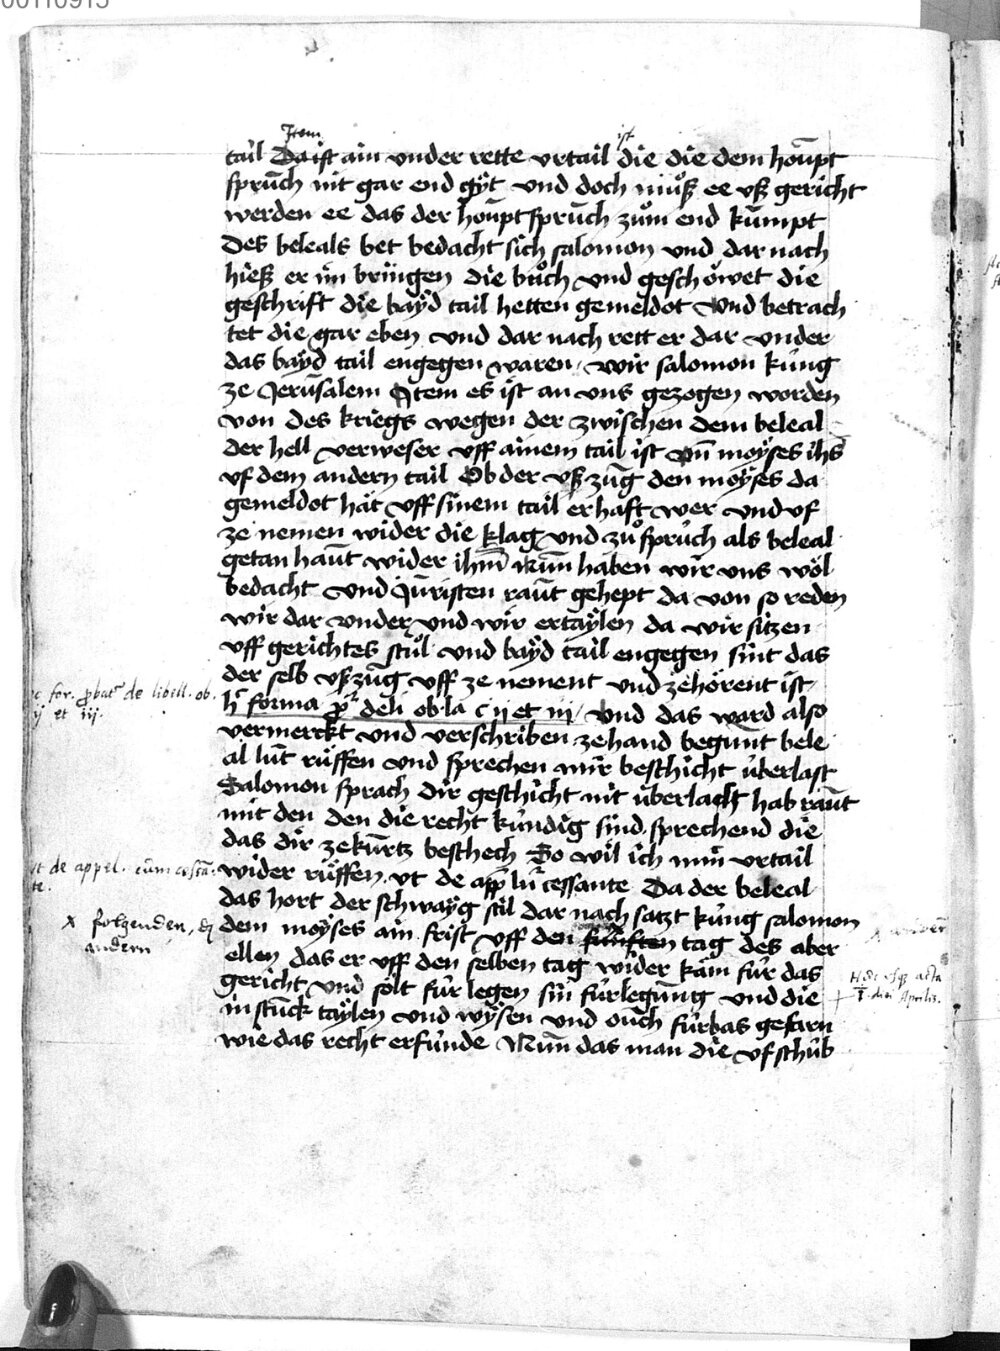 00110915
Item ist
tail Da ist ain under rette urtail die die dem houpt
spruch nit gar end gyt und doch muͦß ee uß gericht
werden ee das der houptspruch zuͦm end kumpt
Des beleals bet bedacht sich salomon und dar nach
hieß er im bringen die buͤch und geschöwet die
geschrift die bayd tail hetten gemeldot Und betrach
tet die gar eben und dar nach rett er dar under
das bayd tail engegen waren wir salomon kung
ze Jerusalem Item es ist an uns gezogen worden
von des kriegs wegen der zwischen dem beleal
der hell verweser uff ainem tail ist un̄ moyses ihs̄
uf dem andern tail Ob der ußzug den moyses da
gemeldot hät uff sinem tail erhaft wer und uf
ze nemen wider die klag und zuͦspruch als beleal
getan haut wider ihm̄ Nun haben wir uns wol
bedacht und Juristen raut gehept da von so reden
wir dar under und wir ertaylen da wir sitzen
uff gerichtes stuͦl und bayd tail engegen sint das
der selb ußzug uff ze nement und zehörent ist
forma deli ob la c ij et iij und das ward also
vermerckt und verschriben zehand begunt bele
al lut ruͤffen und sprechen mir beschicht überlast
Salomon sprach dir geschicht nit überlast hab raut
mit den den die recht kündig sind sprechend die
das dir ze kurtz beschech So wil ich min urtail
wider ruͤffen ut de app lu cessante Da der beleal
das hort der schwayg stil dar nach satzt kung salomon
dem moyses ain frist uff den fünften tag des aber
ellen das er uff den selben tag wider käm für das
gericht und solt für legen sin fürlegung und die
in stuck taylen und wysen und ouch fürbas gefarn
wie das recht erfunde Nun das man die ufschub
for. ꝓbat de libell. ob.
ij et iij.
ut de appel. cum cessa
te.
folgenden,
andern
acta
Aprilis.